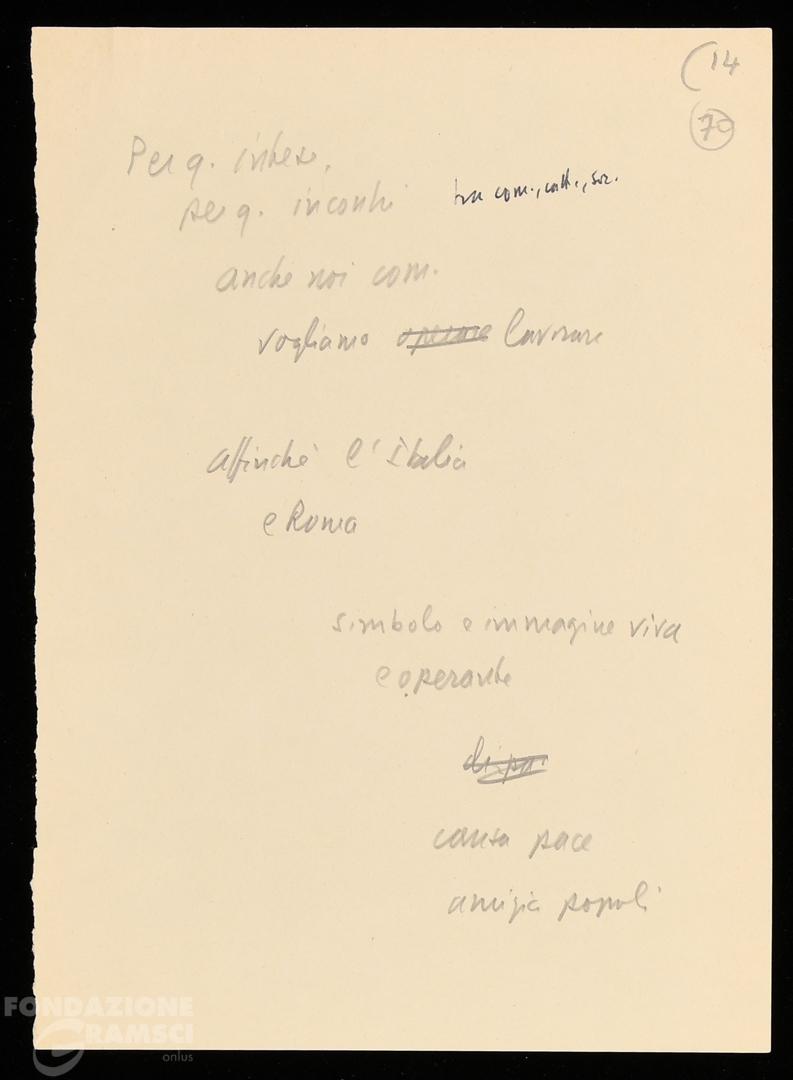 (14
70
Per q. intese,
per q. incontri tra com., catt., soc.
anche noi com.
vogliamo operare lavorare
affinché l'Italia
e Roma
simbolo e immagine viva
e operante
causa pace
amizia popoli
FONDAZIONE
GRAMSCI
onlus